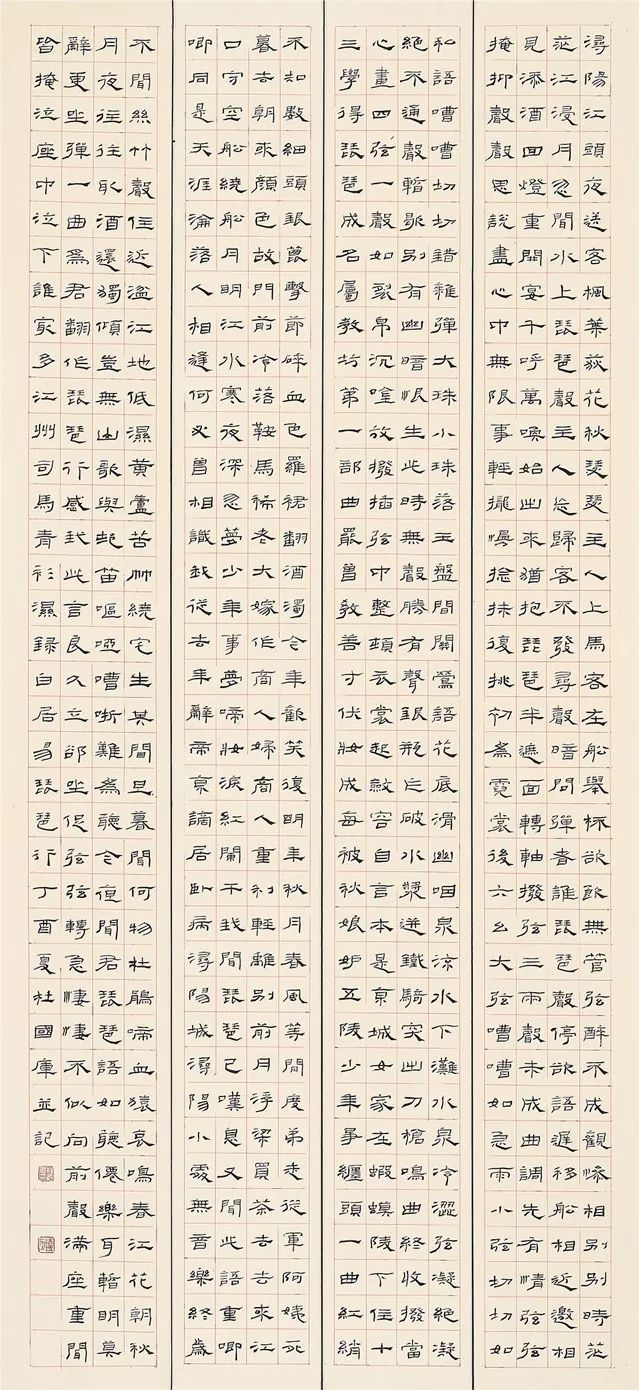 潯陽江頭夜送客楓葉荻花秋瑟瑟主人上馬客在船舉杯欲飲無管弦醉不成歡慘相別別時茫
茫江浸月忽聞水上琵琶聲主人忘歸客不發尋聲暗問彈者誰琵琶聲停欲語遲移船相近邀相
見添酒回燈重開宴千呼萬喚始出來猶抱琵琶半遮面轉軸撥弦三兩聲未成曲調先有情弦弦
掩抑聲聲思說盡心中無限事輕攏慢捻抹復挑初為霓裳後六幺大弦嘈嘈如急雨小弦切切如
私語嘈嘈切切錯雜彈大珠小珠落玉盤間關鶯語花底滑幽咽泉流水下灘水泉冷澀弦凝絕凝
絕不通聲暫歇別有幽暗恨生此時無聲勝有聲銀瓶乍破水漿迸鐵騎突出刀槍鳴曲終收撥當
心畫四弦一聲如裂帛沉吟放撥插弦中整頓衣裳起斂容自言本是京城女家在蝦蟆陵下住十
三學得琵琶成名屬教坊第一部曲罷曾教善才伏妝成每被秋娘妒五陵少年爭纏頭一曲紅綃
不知數鈿頭銀篦擊節碎血色羅裙翻酒今年歡笑復明年秋月春風等閒度弟走從軍阿姨死
暮去朝來顏色故門前冷落鞍馬稀老大嫁作商人婦商人重利輕離別前月浮梁買茶去去來江
口守空船繞船月明江水寒夜深忽夢少年事夢啼妝淚紅闌干我聞琵琶已嘆息又聞此語重唧
唧同是天涯淪落人相逢何必曾相識我從去年辭帝京謫居臥病潯陽城潯陽小處無音樂終歲
不聞絲竹聲住近湓江地低濕黃蘆苦竹繞宅生其間旦暮聞何物杜鵑啼血猿哀鳴春江花朝秋
月夜往往取酒還獨傾豈無山歌與村笛嘔啞嘈哳難為聽今夜聞君琵琶語如聽僊樂耳暫明莫
辭更坐彈一曲為君翻作琵琶行感我此言良久立卻坐促弦弦轉急淒淒不似向前聲滿座重聞
皆掩泣座中泣下誰最多江州司馬青衫濕錄白居易琵琶行丁酉夏杜國庫並記